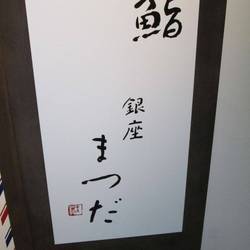 鮨
銀座
まつだ